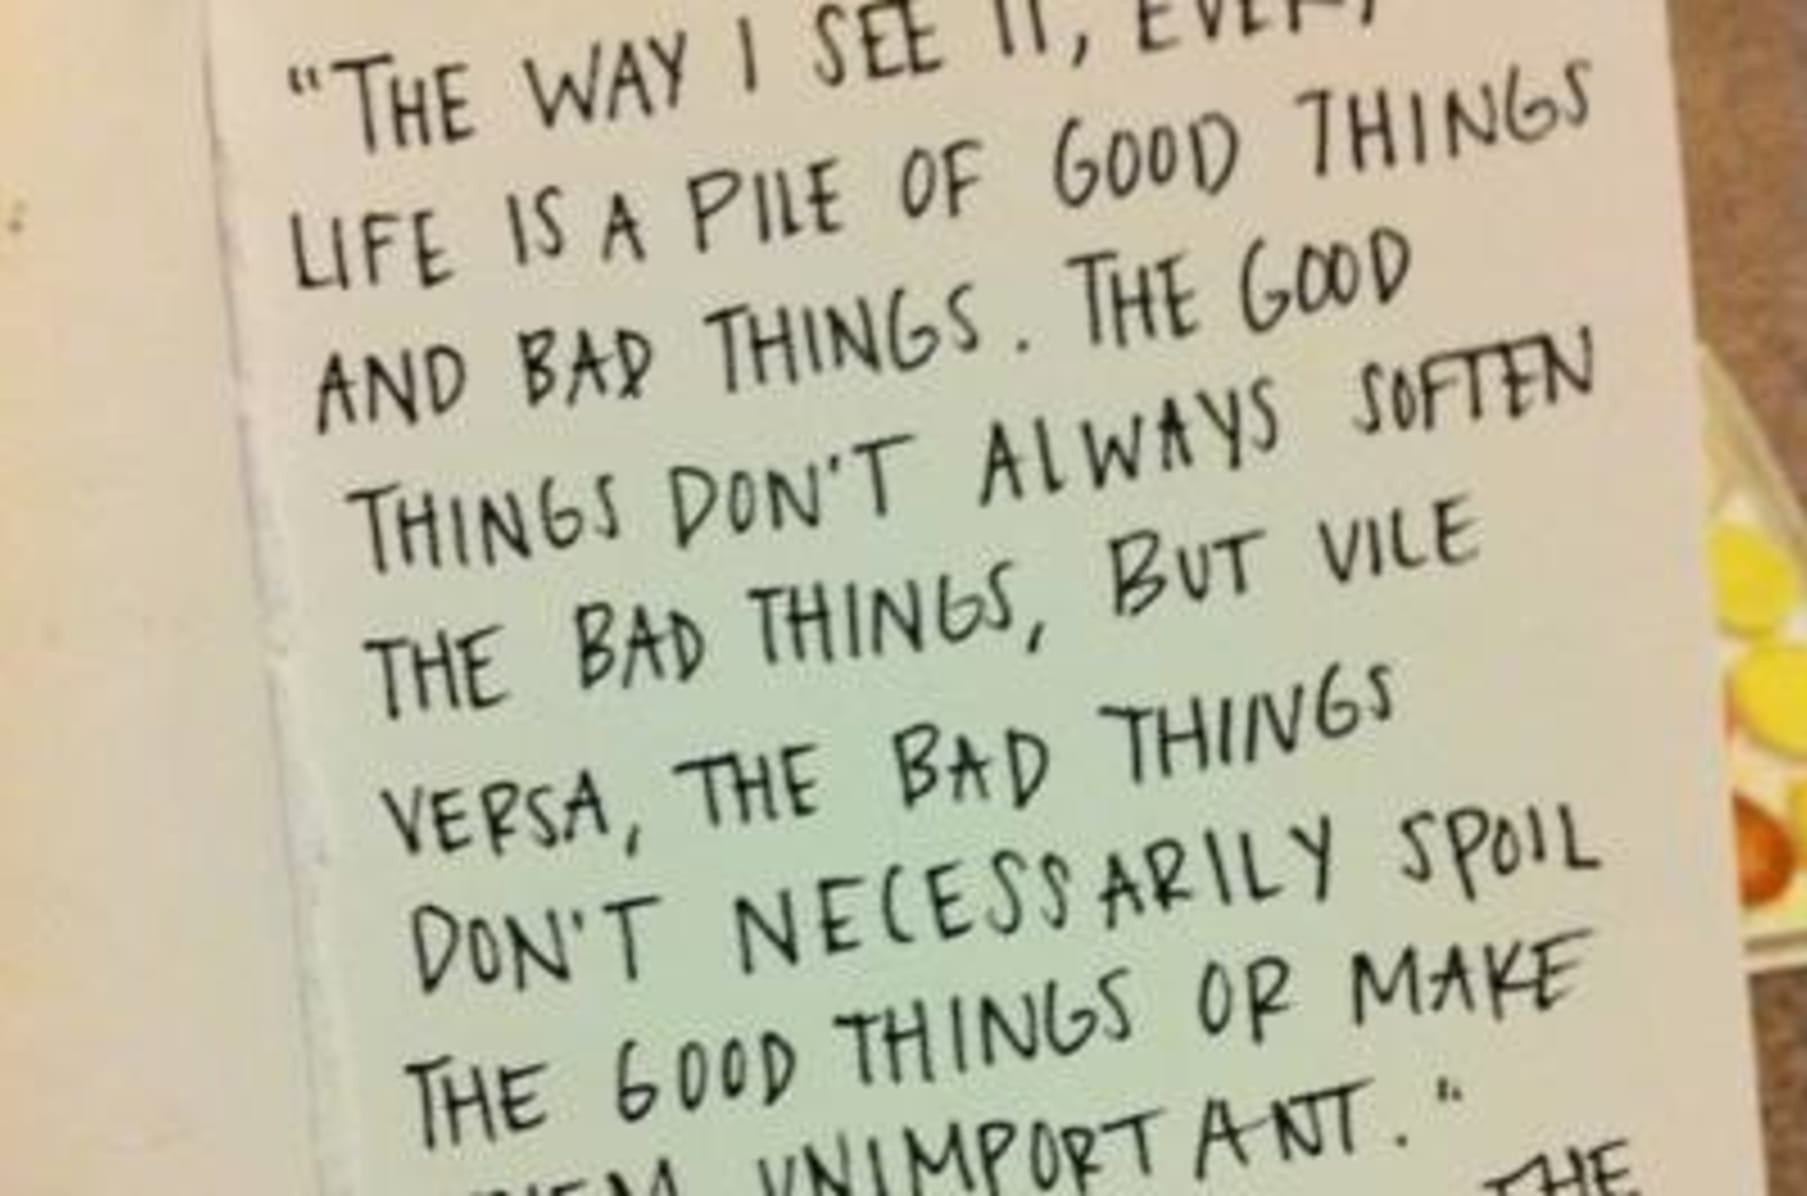 "THE WAY I SEE IT, EVERY
LIFE IS A PILE OF GOOD THINGS
AND BAD THINGS. THE GOOD
THINGS DON'T ALWAYS SOFTEN
THE BAD THINGS, BUT VILE
VERSA, THE BAD THINGS
DON'T NECESSARILY SPOIL
THE GOOD THINGS OR MAKE
THEM UNIMPORTANT."
THE